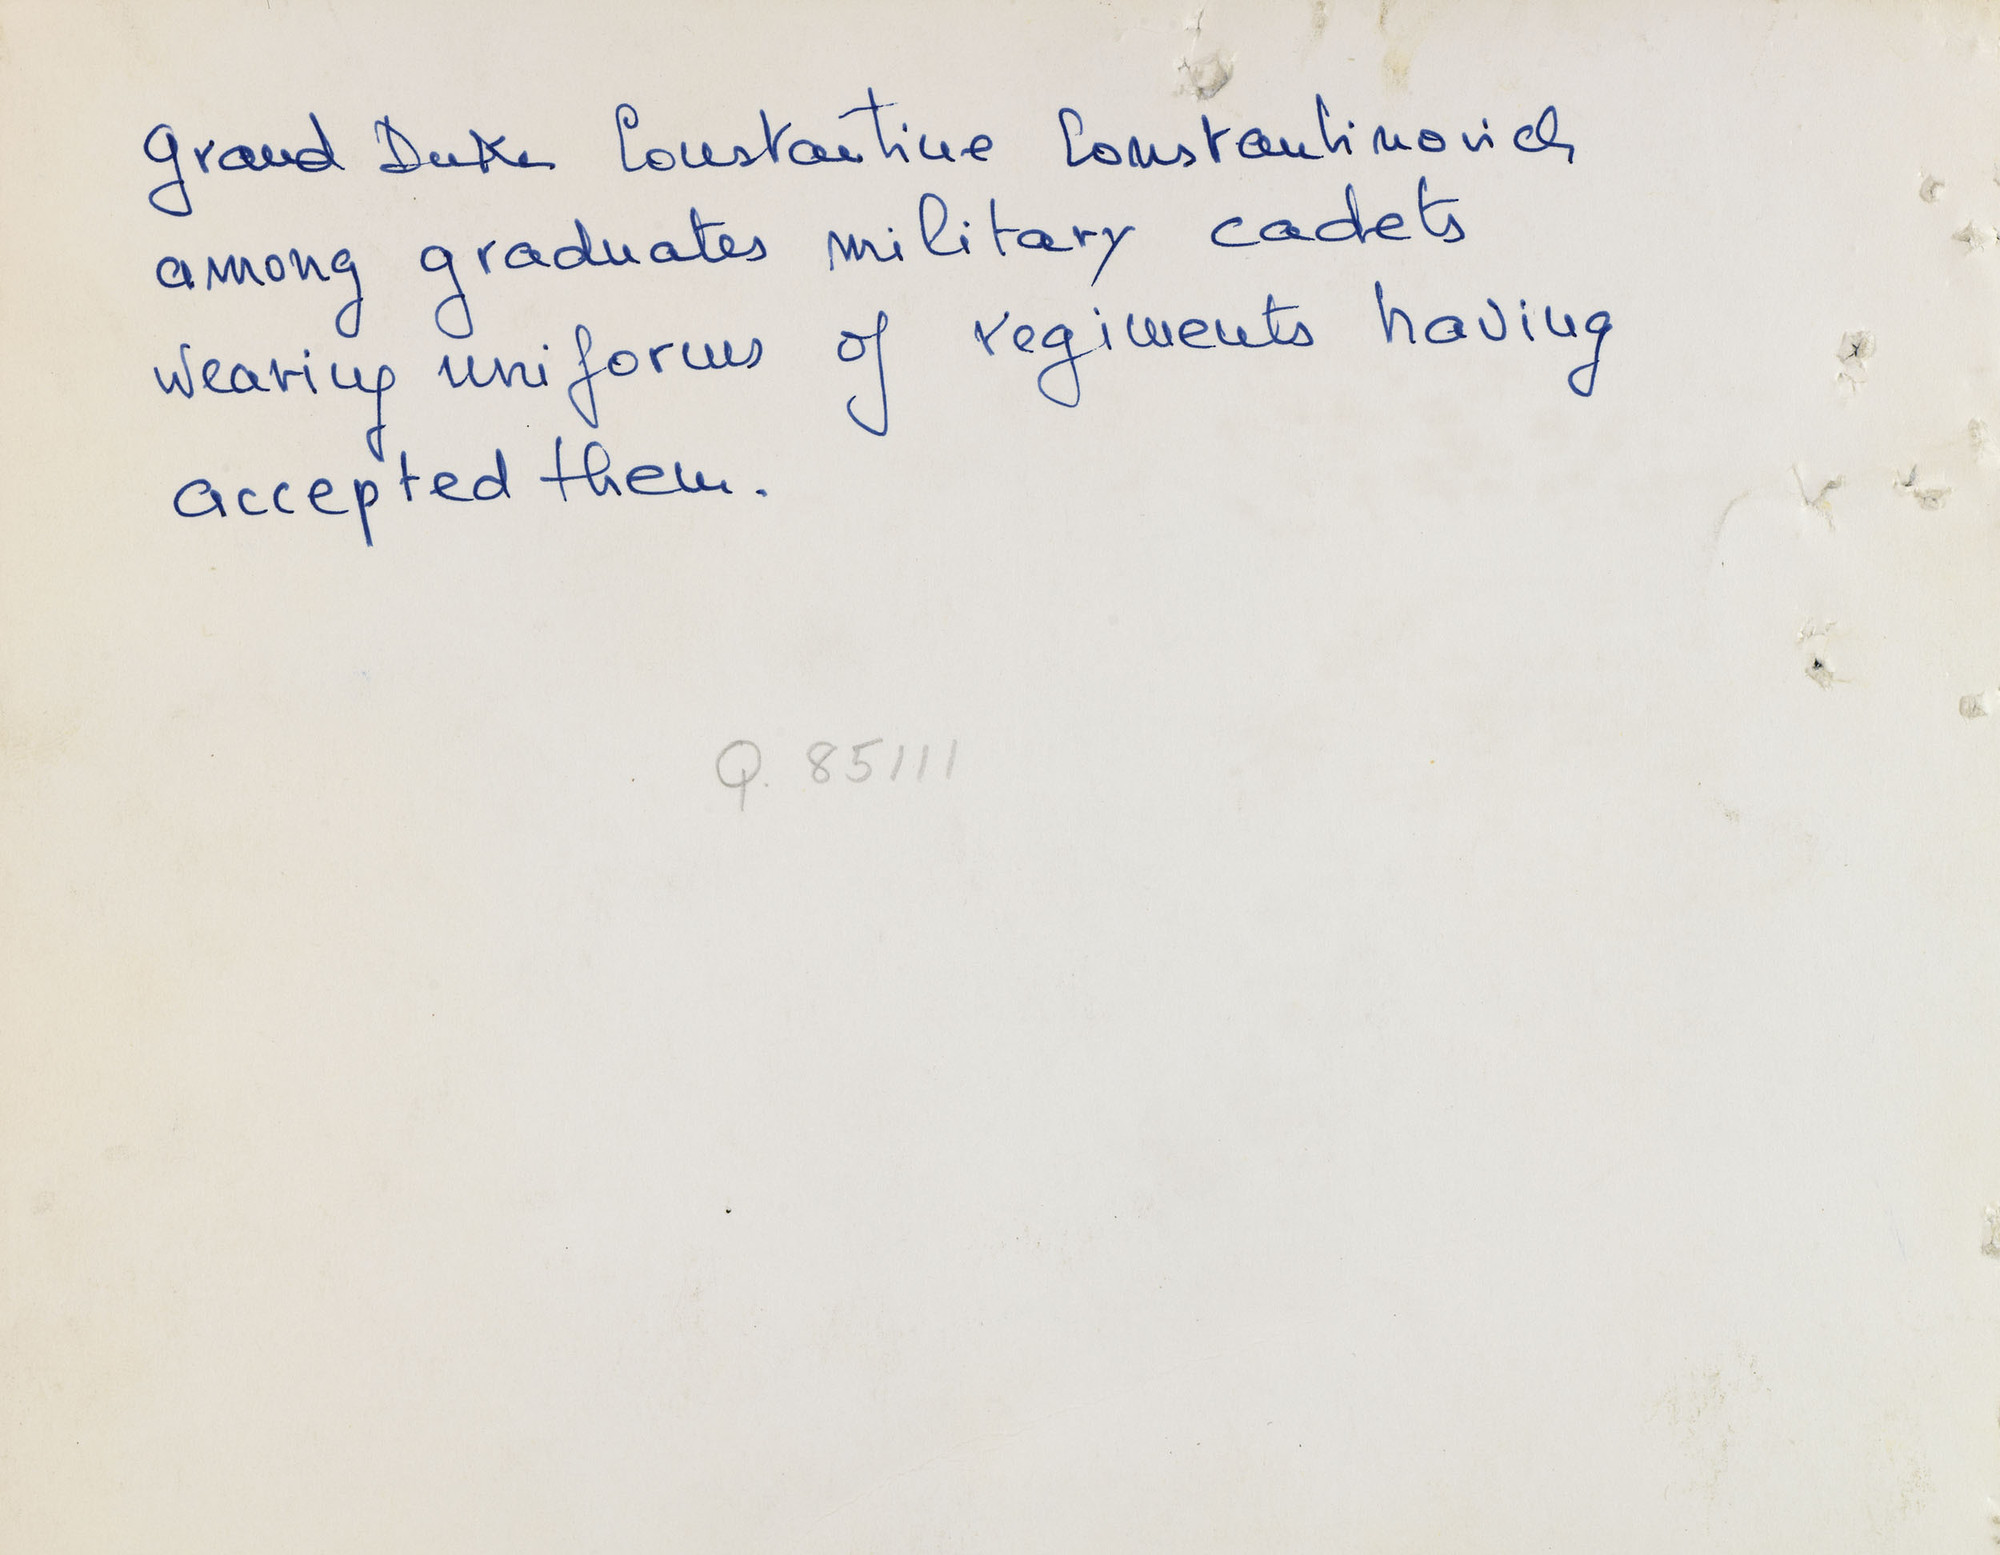 Grand Duke Constantine Constantinovich
among graduates military cadets
wearing uniforms of regiments having
accepted them.
Q. 85111